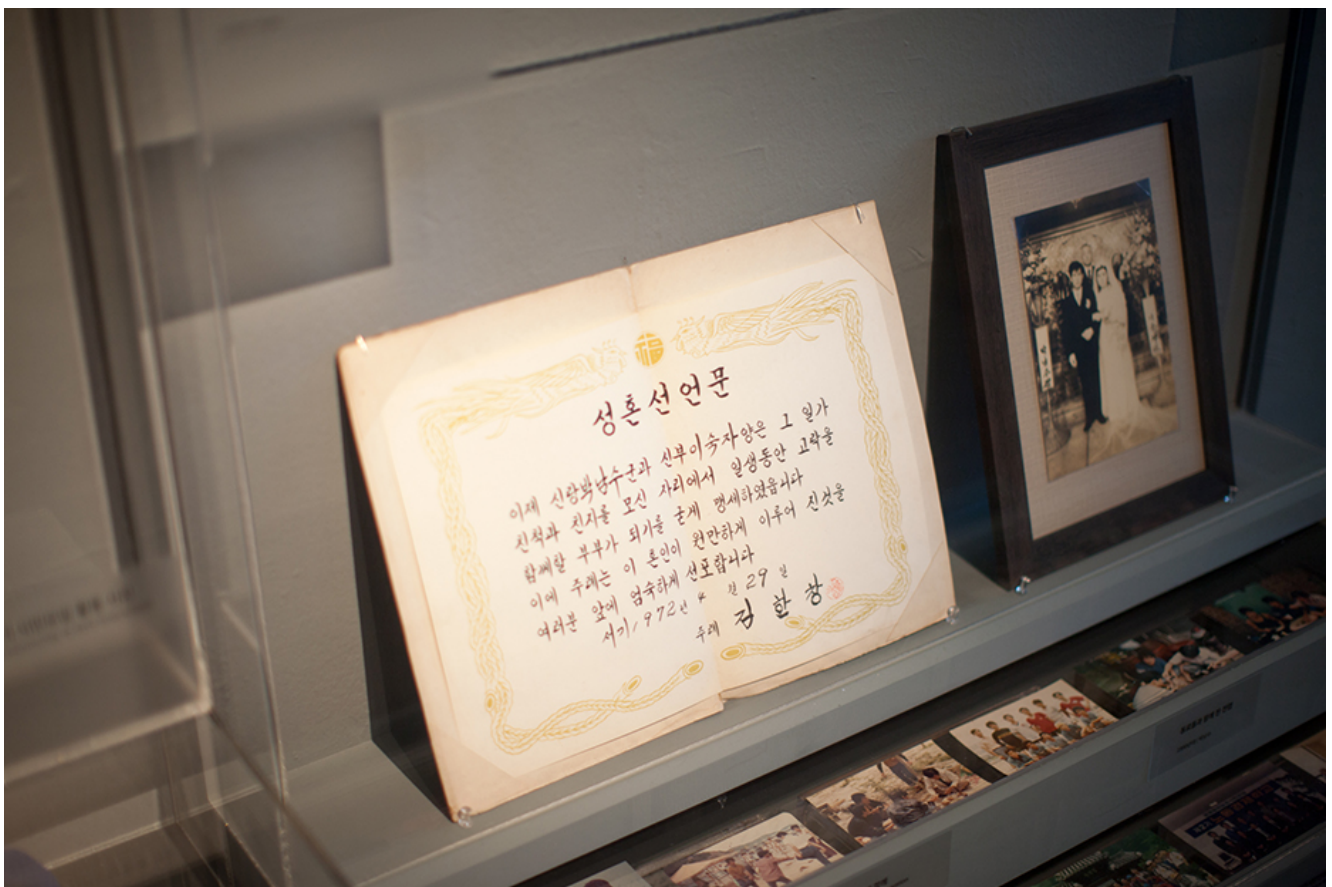 福
성혼선언문
이제 신랑박남수군과 신부이숙자양은 그 일가
친척과 친지를 모신 자리에서 일생동안 고락을
함께할 부부가 되기를 굳게 맹세하였읍니다
이에 주례는 이 혼인이 원만하게 이루어 진것을
여러분 앞에 엄숙하게 선포합니다
서기1972년 4 월 29 일
주례 김한창